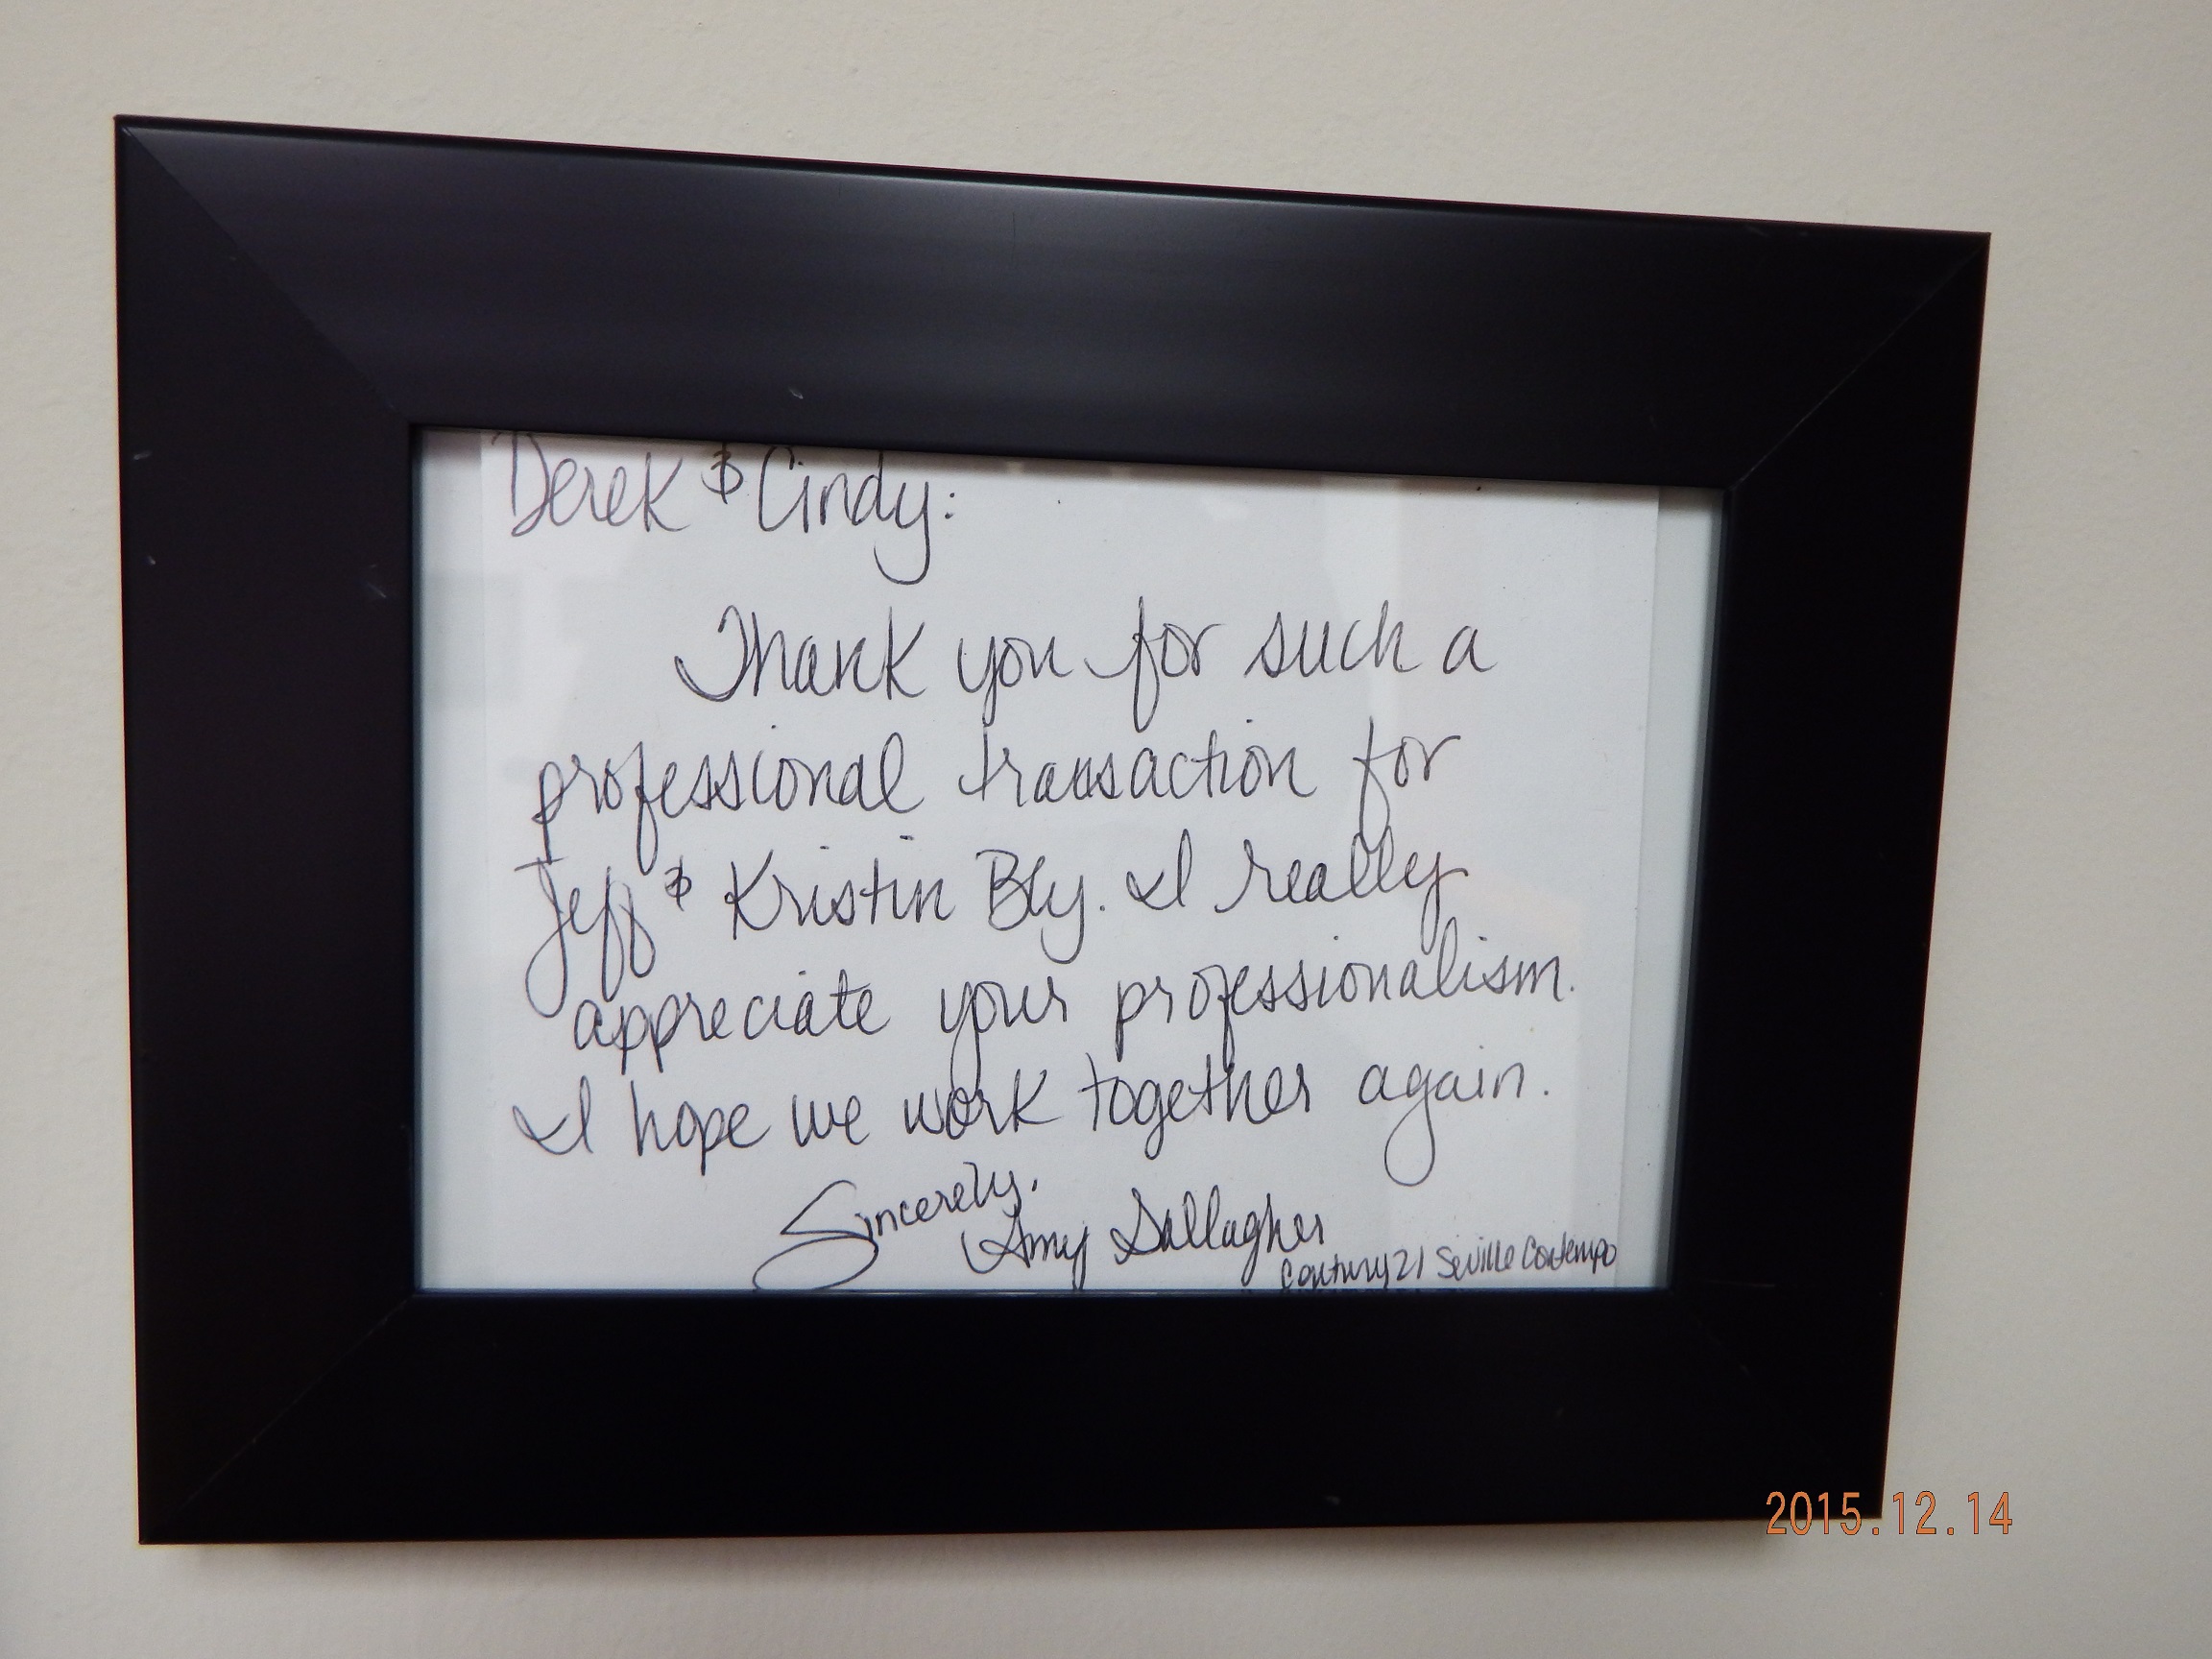 Derek & Cindy:
Thank you for such a
professional transaction for
Jeff & Kristin Bly. I really
appreciate your professionalism.
I hope we work together again.
Sincerely,
Amy Gallagher
Century 21 Seville Contempo
2015.12.14